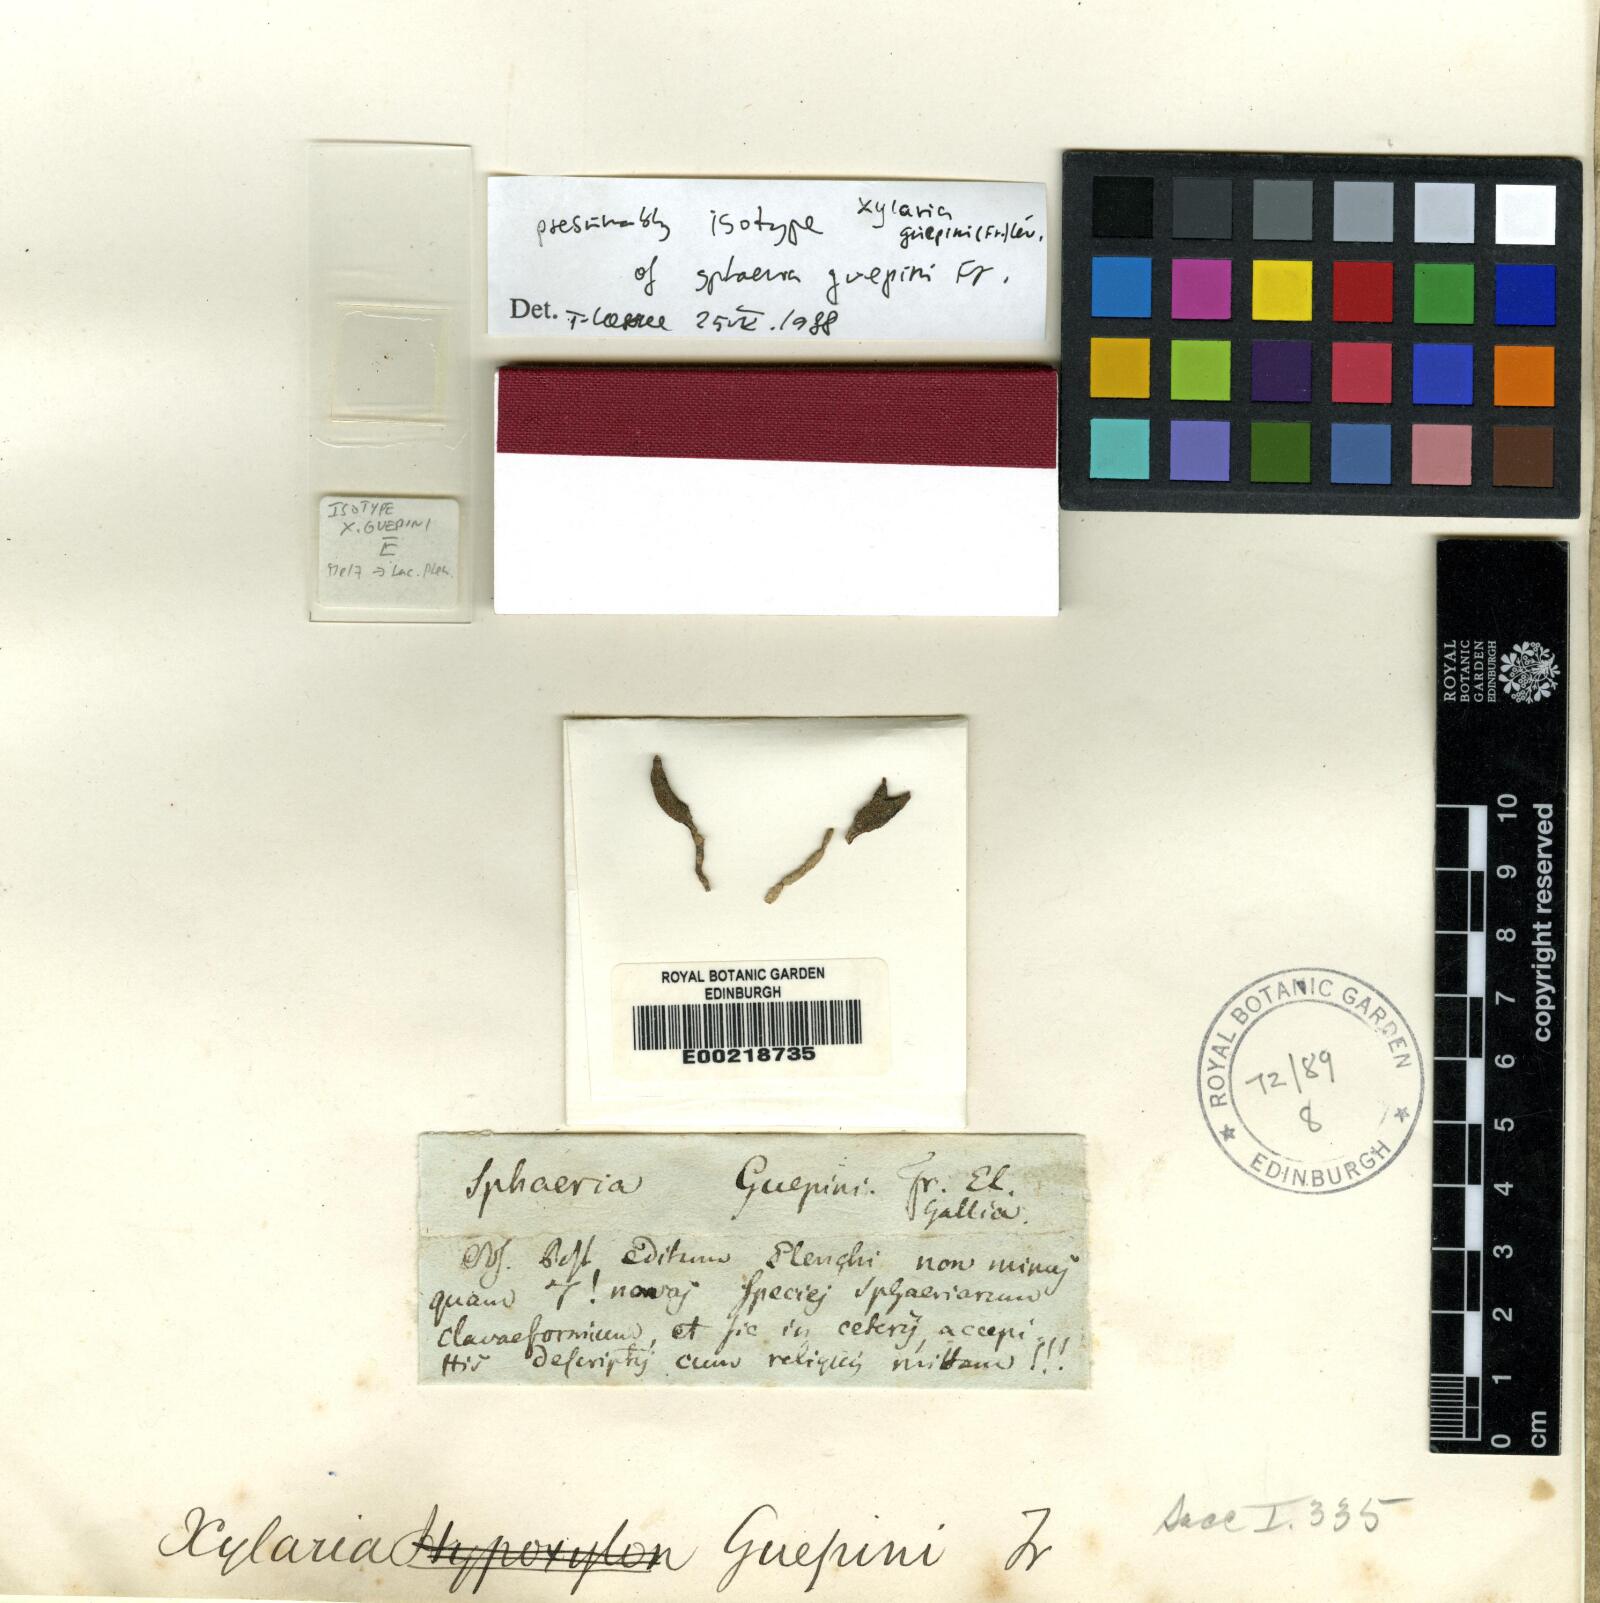 presumably isotype Xylaria
guepini (Fr.) Lév.
of sphaeria guepini Fr.
Det. T. Læssøe 25 IX. 1988
ISOTYPE
X. GUEPINI
E
Melz → Lac. Phen.
ROYAL
BOTANIC
GARDEN
EDINBURGH
ROYAL BOTANIC GARDEN
EDINBURGH
E00218735
ROYAL BOTANIC GARDEN
EDINBURGH
T2/89
8
Sphaeria Guepini. Fr. El.
Gallia.
Obs. Post Editum Elenchi non minus
quam 7! novas species Sphaeriarum
clavaeformium, et sic in ceteris, accepi.
His descriptis cum reliquis mittam!!!
Xylaria Hypoxylon Guepini Fr
Sacc I. 335
10
9
8
7
6
5
4
3
2
1
0
cm
copyright reserved